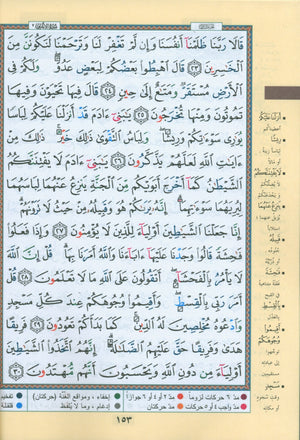 قَالَا رَبَّنَا ظَلَمْنَا أَنفُسَنَا وَإِن لَّمْ تَغْفِرْ لَنَا وَتَرْحَمْنَا لَنَكُونَنَّ مِنَ
الْخَاسِرِينَ ٢٣ قَالَ اهْبِطُوا بَعْضُكُمْ لِبَعْضٍ عَدُوٌّ وَلَكُمْ فِي
الْأَرْضِ مُسْتَقَرٌّ وَمَتَاعٌ إِلَىٰ حِينٍ ٢٤ قَالَ فِيهَا تَحْيَوْنَ وَفِيهَا
تَمُوتُونَ وَمِنْهَا تُخْرَجُونَ ٢٥ يَا بَنِي آدَمَ قَدْ أَنزَلْنَا عَلَيْكُمْ لِبَاسًا
يُوَارِي سَوْآتِكُمْ وَرِيشًا وَلِبَاسُ التَّقْوَىٰ ذَٰلِكَ خَيْرٌ ذَٰلِكَ مِنْ
آيَاتِ اللَّهِ لَعَلَّهُمْ يَذَّكَّرُونَ ٢٦ يَا بَنِي آدَمَ لَا يَفْتِنَنَّكُمُ
الشَّيْطَانُ كَمَا أَخْرَجَ أَبَوَيْكُم مِّنَ الْجَنَّةِ يَنزِعُ عَنْهُمَا لِبَاسَهُمَا
لِيُرِيَهُمَا سَوْآتِهِمَا إِنَّهُ يَرَاكُمْ هُوَ وَقَبِيلُهُ مِنْ حَيْثُ لَا تَرَوْنَهُمْ
إِنَّا جَعَلْنَا الشَّيَاطِينَ أَوْلِيَاءَ لِلَّذِينَ لَا يُؤْمِنُونَ ٢٧ وَإِذَا فَعَلُوا
فَاحِشَةً قَالُوا وَجَدْنَا عَلَيْهَا آبَاءَنَا وَاللَّهُ أَمَرَنَا بِهَا قُلْ إِنَّ اللَّهَ
لَا يَأْمُرُ بِالْفَحْشَاءِ أَتَقُولُونَ عَلَى اللَّهِ مَا لَا تَعْلَمُونَ ٢٨ قُلْ
أَمَرَ رَبِّي بِالْقِسْطِ وَأَقِيمُوا وُجُوهَكُمْ عِندَ كُلِّ مَسْجِدٍ
وَادْعُوهُ مُخْلِصِينَ لَهُ الدِّينَ كَمَا بَدَأَكُمْ تَعُودُونَ ٢٩ فَرِيقًا
هَدَىٰ وَفَرِيقًا حَقَّ عَلَيْهِمُ الضَّلَالَةُ إِنَّهُمُ اتَّخَذُوا الشَّيَاطِينَ
أَوْلِيَاءَ مِن دُونِ اللَّهِ وَيَحْسَبُونَ أَنَّهُم مُّهْتَدُونَ ٣٠
أنزلنا عليكم
ريشا
ينزع عنهما
قبيله
فاحشة
بالقسط
أقيموا
وجوهكم
مدّ ٦ حركات لزوماً
مدّ ٢ أو ٤ أو ٦ جوازاً
إخفاء، ومواقع الغنّة (حركتان)
تفخيم
مدّ واجب ٤ أو ٥ حركات
مدّ حركتان
إدغام، وما لا يُلفظ
قلقلة
١٥٣